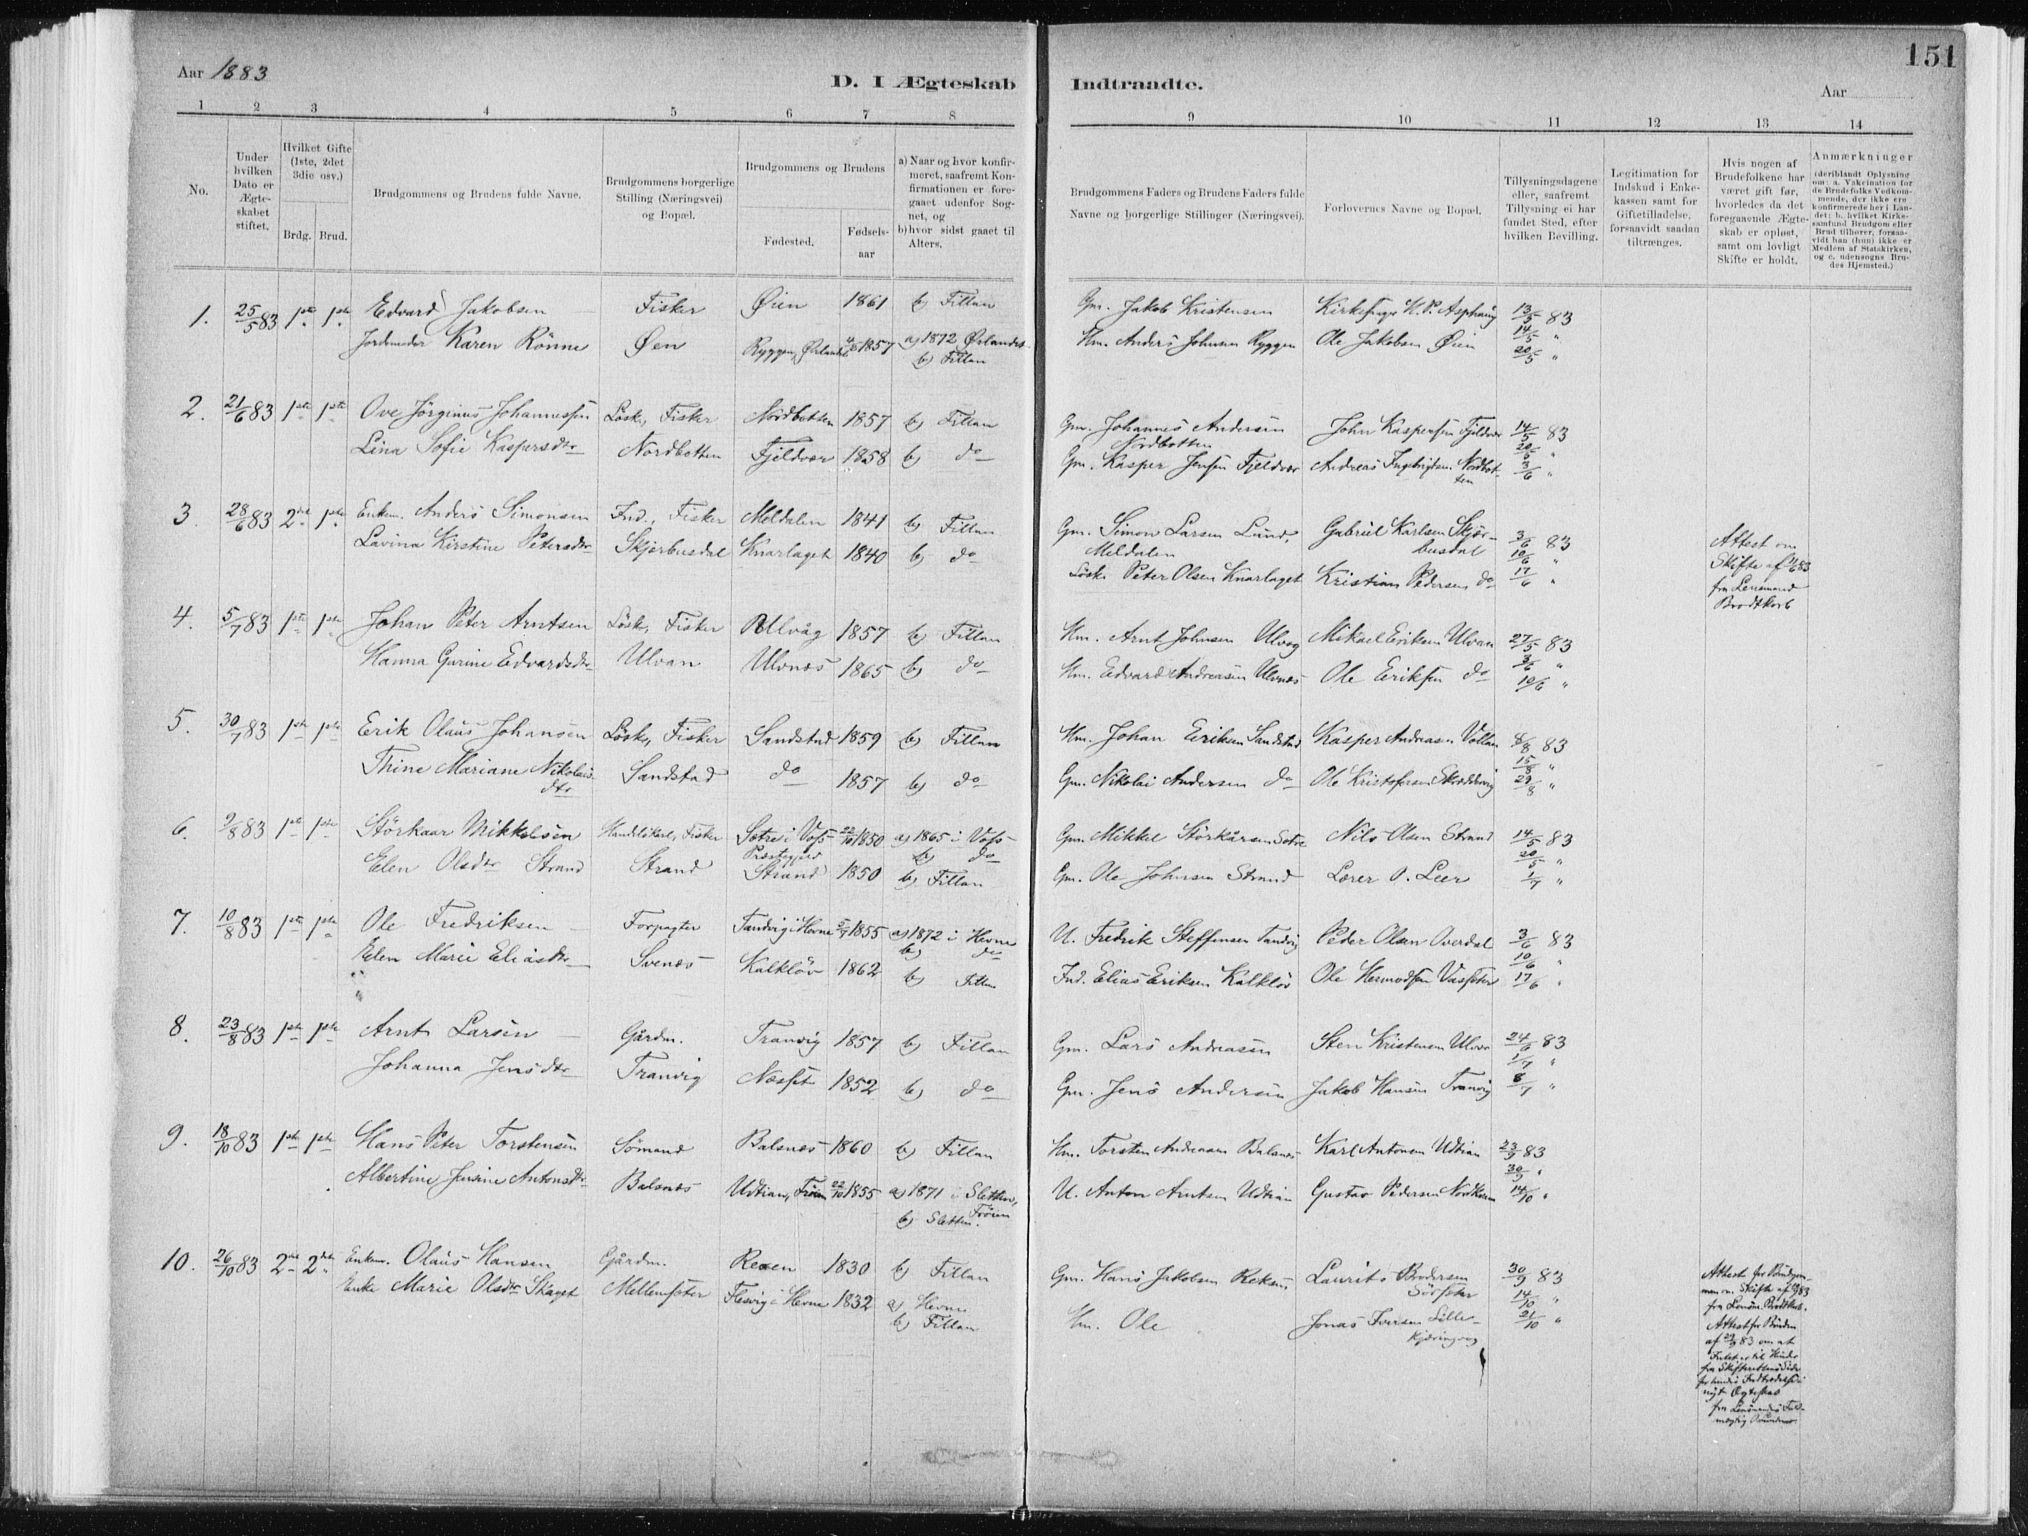 151
Aar 1883
D. I Ægteskab Indtraadte.
Aar
1 2 3 4 5 6 7 8 9 10 11 12 13 14
No.
Under hvilken Dato er Ægte-skabet stiftet.
Hvilket Gifte (1ste, 2det 3die osv.)
Brdg. Brud.
Brudgommens og Brudens fulde Navne.
Brudgommens borgerlige Stilling (Næringsvei) og Bopæl.
Brudgommens og Brudens
Fødested.
Fødsels-aar
a) Naar og hvor konfir-meret, saafremt Kon-firmationen er fore-gaaet udenfor Sog-net, og
b) hvor sidst gaaet til Alters.
Brudgommens Faders og Brudens Faders fulde Navne og borgerlige Stillinger (Næringsvei).
Forlovernes Navne og Bopæl.
Tillysningsdagene eller, saafremt Tillysning ei har fundet Sted, efter hvilken Bevilling.
Legitimation for Indskud i Enke-kassen samt for Giftetilladelse, forsaavidt saadan tiltrænges.
Hvis nogen af Brudefolkene har været gift før, hvorledes da det foregaaende Ægte-skab er opløst, samt om lovligt Skifte er holdt.
Anmærkninger
(deriblandt Oplysning om: a. Vakcination for de Brudefolks Vedkom-mende, der ikke ere konfirmerede her i Lan-det: b. hvilket Kirke-samfund Brudgom eller Brud tilhører, forsaa-vidt han (hun) ikke er Medlem af Statskirken, og c. udensogns Bru-des Hjemsted.)
1. 25/5 83 1ste 1ste Edvard Jakobsen Fisker Øien 1861 b) Fillan Gm. Jakob Kristensen Kirkesanger H. P. Asphaug 13/5 83
Jordemoder Karen Rönne Øen Ryggen, Ørlandet 1857 a) 1872 Ørlandet Hm. Anders Johnsen Ryggen Ole Jakobsen Øien 14/5 "
b) Fillan 20/5 "
2. 21/6 83 1ste 1ste Ove Jörginus Johannessen Løsk, Fisker Nordbotten 1857 b) Fillan Gm. Johannes Andersen Nordbotten John Kaspersen Fjeldvær 14/5 83
Lina Sofie Kaspersdtr Nordbotten Fjeldvær 1858 b) do Gm. Kasper Jensen Fjeldvær Andreas Ingebrigtsen Nordbotten 3/6 "
3. 28/6 83 2det 1ste Enkem. Anders Simonsen Ind., Fisker Meldalen 1841 b) Fillan Gm. Simon Larsen Lund, Meldalen Gabriel Karlsen Skjörbusdal 3/6 83
Lavina Kirstine Petersdtr Skjørbusdal Knarlaget 1840 b) do Løsk. Peter Olsen Knarlaget Kristian Pedersen do 10/6 " 17/6 "
Attest om Skifte af 83 fra Lensmand Brodtkorb
4. 5/7 83 1ste 1ste Johan Peter Arntsen Løsk, Fisker Ulvåg 1857 b) Fillan Hm. Arnt Johnsen Ulvåg Mikael Eriksen Ulvan 27/5 83
Hanna Gurine Edvardsdtr Ulvan Ulvnæs 1865 b) do Hm. Edvard Andreasen Ulvnæs Ole Eriksen do 3/6 " 10/6 "
5. 30/7 83 1ste 1ste Erik Olaus Johansen Løsk, Fisker Sandstad 1859 b) Fillan Hm. Johan Eriksen Sandstad Kasper Andreasen Vollan 83
Thine Mariane Nikolaisdtr Sandstad do 1857 b) do Gm. Nikolai Andersen do Ole Kristofersen
6. 9/8 83 1ste 1ste Störkaar Mikkelsen Handelskarl, Fisker Sætre i Voss Præstegjeld 22/10 1850 a) 1865 i Voss b) do Gm. Mikkel Störkårsen Sætre Nils Olsen Strand 14/5 83
Elen Olsdtr Strand Strand Strand 1850 b) Fillan Gm. Ole Johnsen Strand Lærer O. Leer 20/5 " 1/7 "
7. 10/8 83 1ste 1ste Ole Fredriksen Forpagter Tandvig i Hevne 1855 a) 1872 i Hevne b) do U. Fredrik Steffensen Tandvig Peder Olsen Overdal 3/6 83
Elen Marie Eliasdtr Svenæs Kalkløv 1862 b) Fillan Ind. Elias Eriksen Kalkløv Ole Hermodsen 10/6 " 17/6 "
8. 23/8 83 1ste 1ste Arnt Larsen Gårdm. Tranvig 1857 b) Fillan Gm. Lars Andreasen Sten Kristensen 24/6 83
Johanna Jensdtr Tranvig Næsset 1852 b) do Gm. Jens Andersen Jakob Hansen Tranvig 1/7 " 8/7 "
9. 18/10 83 1ste 1ste Hans Peter Torstensen Sömand Balsnæs 1860 b) Fillan Hm. Torsten Andreasen Balsnæs Karl Antonsen Udtian 23/9 83
Albertine Jensine Antonsdtr Balsnæs Udtian, Fröien 22/10 1855 a) 1871 i Sletten, Fröien b) Sletten. U. Anton Arntsen Udtian Gustav Pedersen 30/9 " 14/10 "
10. 26/10 83 2det 2det Enkem. Olaus Hansen Gårdm. Rexen 1830 b) Fillan Gm. Hans Jakobsen Reksen, Laurits Brodersen 30/9 83
Enke Marie Olsdtr Skaget Mellemsæter Flesvig i Hevne 1832 a) Hevne b) Fillan Hm. Ole Jonas Iversen Lille-Kjæringvåg 14/10 " 21/10 "
Attest for Brudgom-men om Skifte af 83 fra Lensm. Brodtkorb.
Attest for Bruden af 83 om at Intet er til Hinder fra Skifterettens Side for hendes Indtrædelse i nyt Ægteskab